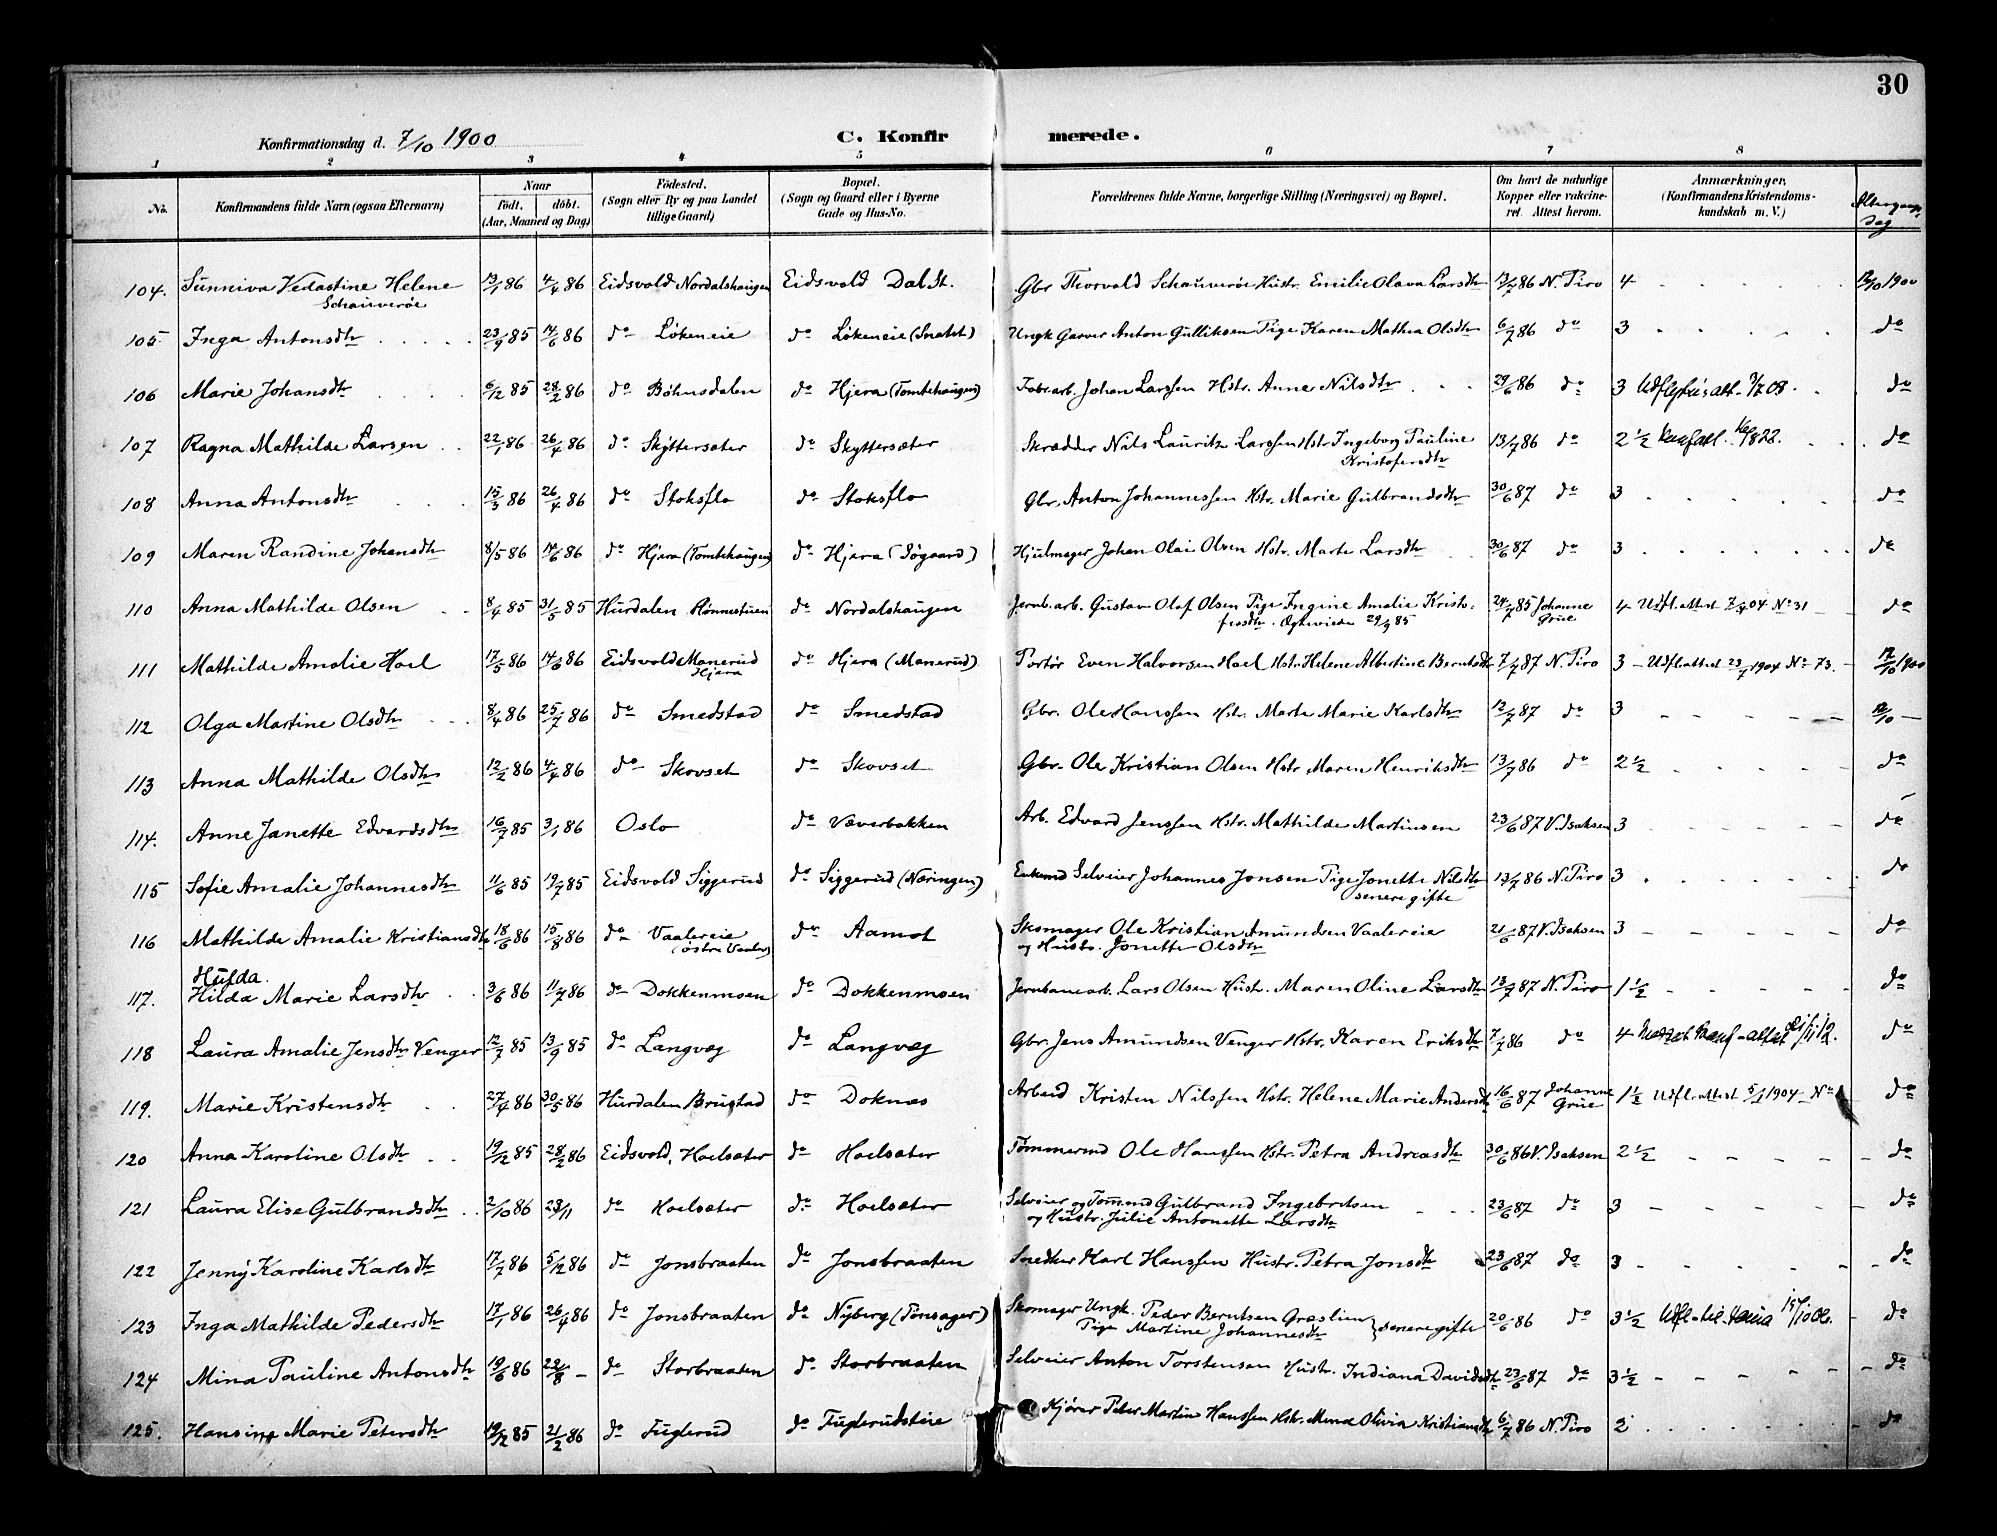 30
Konfirmationsdag d. 7/10 1900 C. Konfirmerede.
1 2 3 4 5 6 7 8
No. Konfirmandens fulde Navn (ogsaa Efternavn) Naar født. døbt. (Aar, Maaned og Dag) Fødested. (Sogn eller By og paa Landet tillige Gaard) Bopæl. (Sogn og Gaard eller i Byerne Gade og Hus-No. Forældrenes fulde Navne, borgerlige Stilling (Næringsvei) og Bopæl. Om havt de naturlige Kopper eller vakcineret. Attest herom. Anmærkninger, (Konfirmandens Kristendomskundskab m. V.) Altergangsdag
104. Sunniva Vedastine Helene Schauverøe 13/1 86 4/4 86 Eidsvold Nordalshaugen Eidsvold Dal St. Gbr Thorvald Schauverøe Hustr. Emilie Olava Larsdtr 13/7 86 N. Tiro 4 12/10 1900
105 Inga Antonsdtr 23/9 85 14/6 86 do Løkeneie do Løkeneie (Snatst) Ungk Garver Anton Gulliksen Pige Karen Mathea Olsdtr 6/7 86 do 3 do
106 Marie Johansdtr 6/12 85 28/2 86 do Bøhnsdalen do Hjera (Tomtehaugen) Fabr.arb. Johan Larssen Hstr. Anne Nilsdtr 29/6 86 do 3 do
107 Ragna Mathilde Larsen 22/1 86 26/4 86 do Skyttersæter do Skyttersæter Skrædder Nils Lauritz Larssen Hstr Ingeborg Pauline Kristofersdtr 13/7 86 do 2 1/2 do
108 Anna Antonsdtr 15/3 86 26/4 86 do Stoksflo do Stoksflo Gbr. Anton Johannessen Hstr. Marie Gulbrandsdtr 30/6 87 do 3 do
109 Maren Randine Johansdtr 8/5 86 14/6 86 do Hjera (Tomtehaugen) do Hjera (Søgaard) Hjulmager Johan Olai Olsen Hstr. Marte Larsdtr 30/6 87 do 3 do
110 Anna Mathilde Olsen 8/4 85 31/5 85 Hurdalen Rønnestuen do Nordalshaugen Jernb.arb. Gustav Olaf Olsen Pige Ingine Amalie Kristofersdtr. Ogteviede 29/3 85 24/7 85 Johanne Grue 4 Udfl. attest 04 No 31 do
111 Mathilde Amalie Hoel 17/5 86 14/6 86 Eidsvold Manerud Hjera do Hjera (Manerud) Portør Even Halvorsen Hoel Hstr Helene Albertine Berntsdtr 7/7 87 N. Tiro 3 Udfl. attest 23/7 1904 No 73. 12/10 1900
112 Olga Martine Olsdtr 8/4 86 25/7 86 do Smedstad do Smedstad Gbr. Ole Hanssen Hstr. Marte Marie Karlsdtr 12/7 87 do 3 12/10
113 Anna Mathilde Olsdtr 12/2 86 4/4 86 do Skovset do Skovset Gbr. Ole Kristian Olsen Hstr Maren Henriksdtr 13/7 86 do 2 1/2 do
114. Anne Janette Edvardsdtr 16/7 85 3/1 86 Oslo do Væverbakken Arb. Edvard Jenssen Hstr. Mathilde Martinsen 23/6 87 V. Isaksen 3 do
115 Sofie Amalie Johannesdtr 11/6 85 19/7 85 Eidsvold Siggerud do Siggerud (Næringen) Enkemd Selveier Johannes Jonsen Pige Jonette Nilsdtr senere gifte 13/7 86 N. Tiro 3 do
116 Mathilde Amalie Kristiansdtr 18/6 86 15/8 86 do Vaalereie (østre Vaaler) do Aamot Skomager Ole Kristian Amundsen Vaalereie og Hustr. Jonette Olsdtr 21/6 87 V. Isaksen 3 do
117. Hulda Hilda Marie Larsdtr 3/6 86 11/7 86 do Dokkenmoen do Dokkenmoen Jernbanearb. Lars Olsen Hustr. Maren Oline Larsdtr 13/7 87 N. Tiro 1 1/2 do
118 Laura Amalie Jensdtr Venger 12/7 85 13/9 85 do Langvæg do Langvæg Gbr. Jens Amundsen Venger Hstr. Karen Eriksdtr 7/7 86 do 4 do
119. Marie Kristensdtr 27/4 86 30/5 86 Hurdalen Brustad do Doknæs Arbeid Kristen Nilssen Hstr. Helene Marie Andersdtr 16/6 87 Johanne Grue 1 1/2 Udfl. attest 1904 No do
120 Anna Karoline Olsdtr 19/12 85 28/2 86 Eidsvold, Hoelsæter do Hoelsæter Tømmermd Ole Hanssen Hstr. Petra Andreasdtr 30/6 86 V. Isaksen 2 1/2 do
121 Laura Elise Gulbrandsdtr 2/10 86 23/11 do Hoelsæter do Hoelsæter Selveier og Tømmd Gulbrand Ingebritsen og Hustr. Julie Antonette Larsdtr 23/6 87 do 3 do
122 Jenny Karoline Karlsdtr 17/7 86 5/12 86 do Jonsbraaten do Jonsbraaten Snedker Karl Hanssen Hustr. Petra Jonsdtr 23/6 87 do 3 do
123 Inga Mathilde Pedersdtr 17/1 86 26/4 86 do Jonsbraaten do Nyberg (Tonsager) Skomager Ungk. Peder Berntsen Græslien Pige Martine Johannesdtr } senere gifte 20/6 86 do 3 1/2 do
124 Mina Pauline Antonsdtr 19/6 86 22/8 – do Storbraaten do Storbraaten Selveier Anton Torstensen Hustr. Indiana Davidsdtr 23/6 87 do 3 1/2 do
125. Hansine Marie Petersdtr 19/12 85 21/2 86 do Fuglerud do Fuglerudseie Kjører Peter Martin Hanssen Hstr. Mina Olivia Kristiansdtr 6/7 86 N. Tiro 2 do